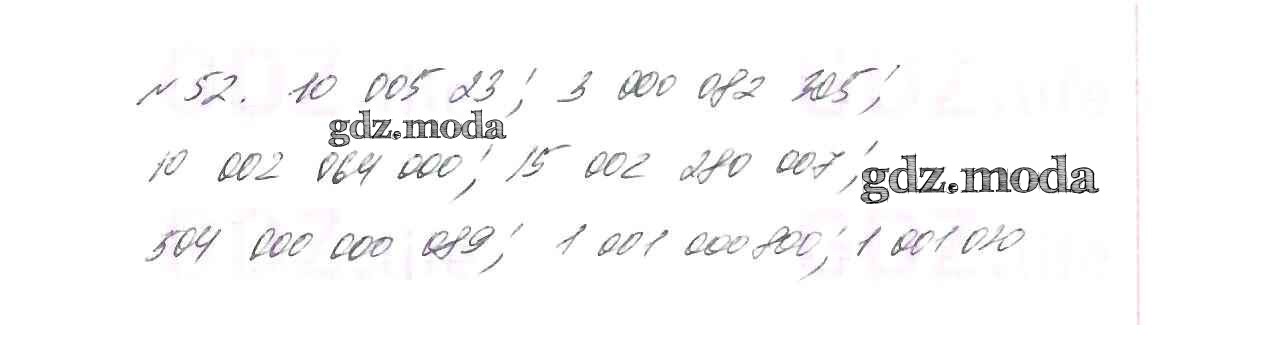 № 52. 10 005 23; 3 000 082 305;
gdz.moda
10 002 064 000; 15 002 280 007;
gdz.moda
504 000 000 089; 1 001 000 800; 1 001 010